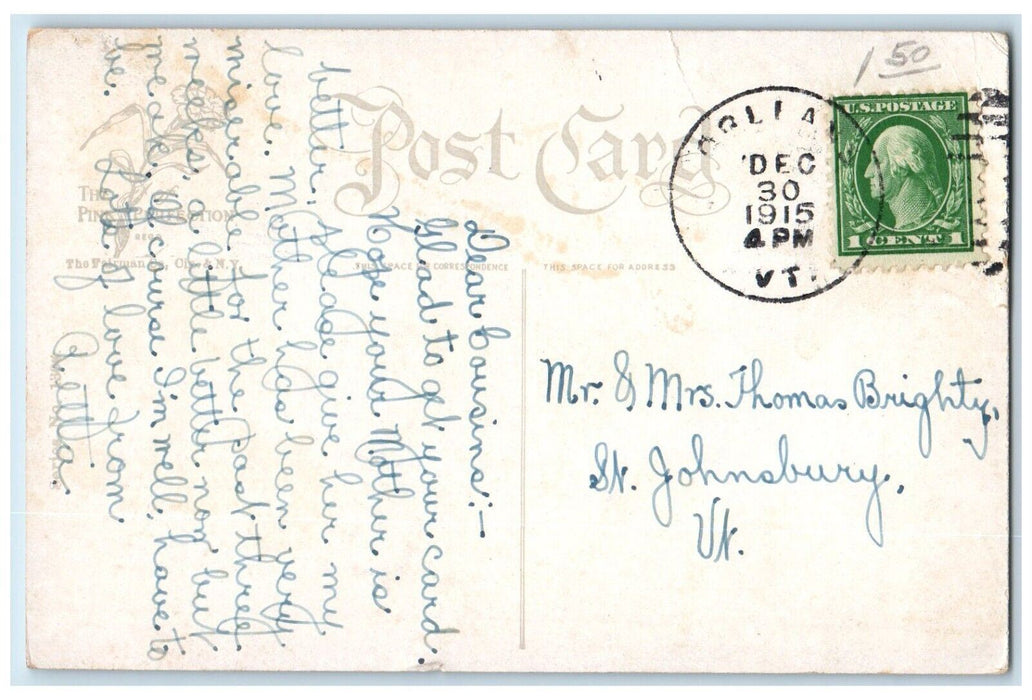 Post Card
1 50
U.S. POSTAGE
1 CENT 1
DEC
30
1915
4 PM
VT.
THE
PINK PERFECTION
REGD
The Fairman Co., Cin. & N.Y.
THIS SPACE FOR CORRESPONDENCE
THIS SPACE FOR ADDRESS
Dear Cousins:—
Glad to get your card.
Hope your Mother is
better. Please give her my
love. Mother has been very
miserable for the past three
weeks, a little better now but
me ale. Of curse I'm well, have to
be. Lots of love from
Etta.
Mr. & Mrs. Thomas Brighty,
St. Johnsbury,
Vt.